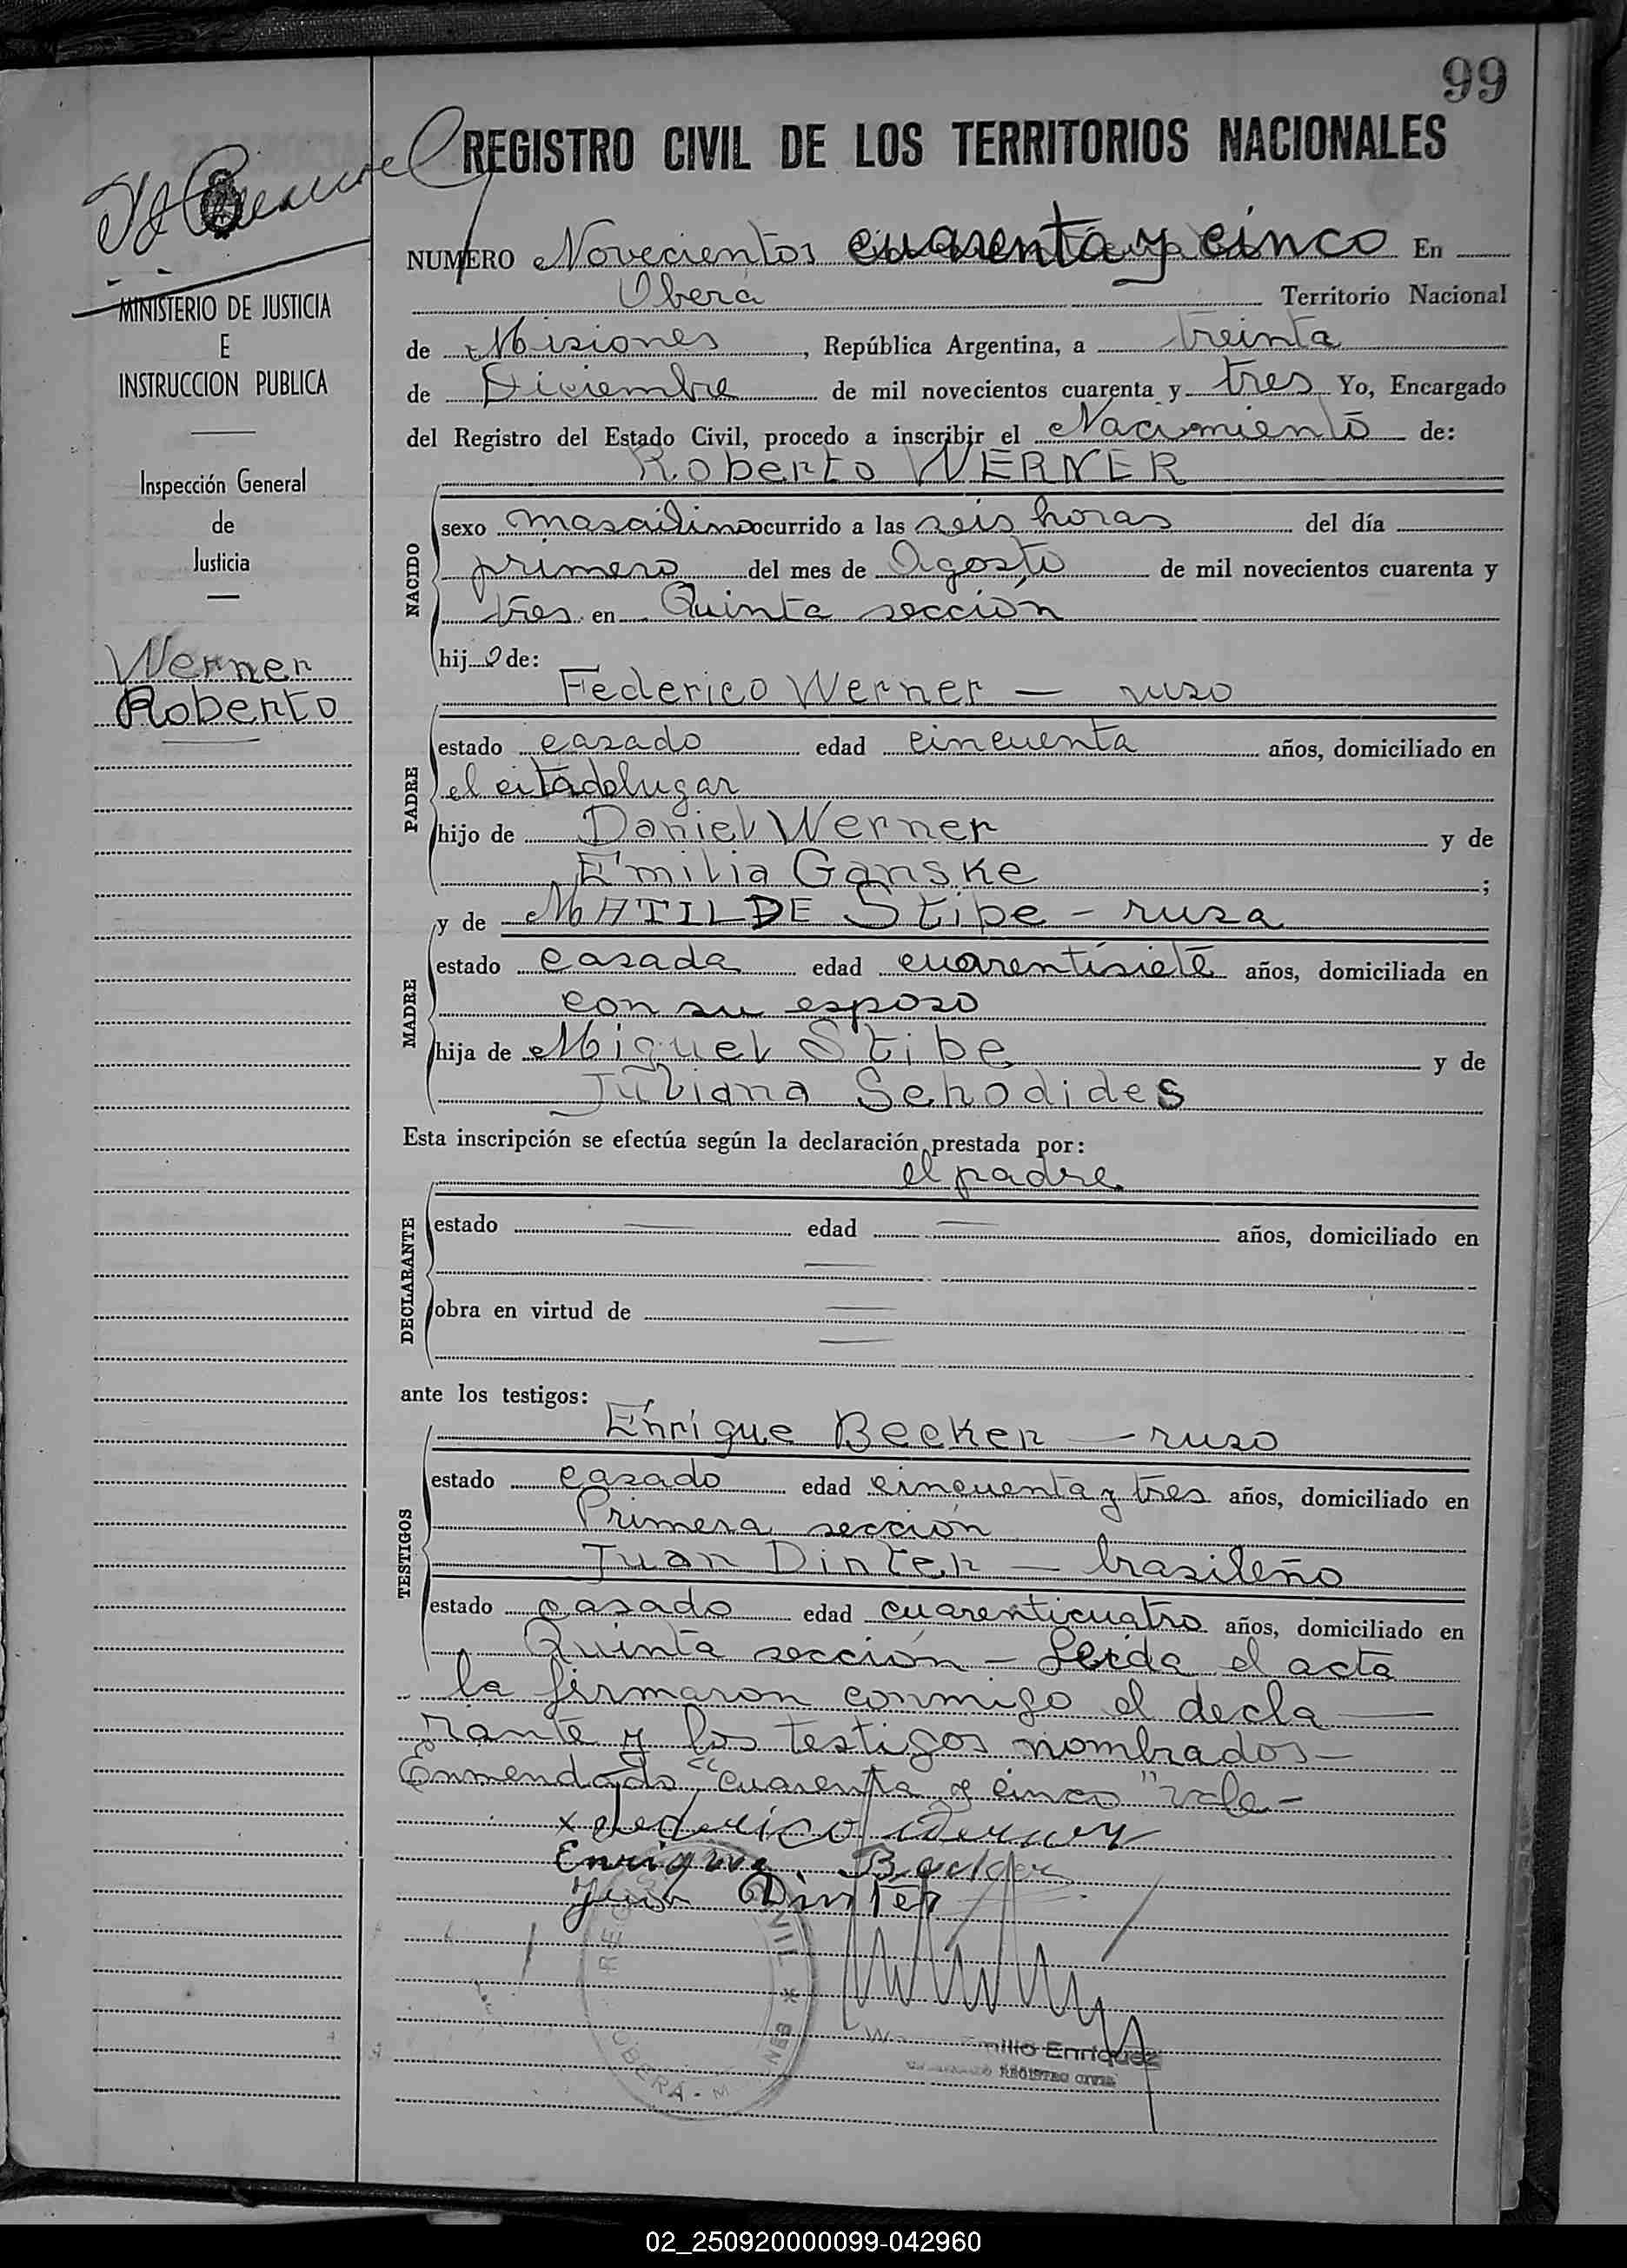 99
REGISTRO CIVIL DE LOS TERRITORIOS NACIONALES
NUMERO Novecientos cuarenta y cinco En
Oberá Territorio Nacional
de Misiones, República Argentina, a treinta
de Diciembre de mil novecientos cuarenta y tres Yo, Encargado
del Registro del Estado Civil, procedo a inscribir el Nacimiento de:
Roberto WERNER
MINISTERIO DE JUSTICIA
E
INSTRUCCION PUBLICA
Inspección General
de
Justicia
Werner
Roberto
NACIDO
sexo masculino ocurrido a las seis horas del día
primero del mes de Agosto de mil novecientos cuarenta y
tres en Quinta sección
hijo de:
Federico Werner — ruso
PADRE
estado casado edad cincuenta años, domiciliado en
el citado lugar
hijo de Daniel Werner y de
Emilia Ganske;
y de MATILDE Stibe - rusa
MADRE
estado casada edad cuarentisiete años, domiciliada en
con su esposo
hija de Miguel Stibe y de
Juliana Schodides
Esta inscripción se efectúa según la declaración prestada por:
el padre
DECLARANTE
estado edad años, domiciliado en
obra en virtud de
ante los testigos:
Enrique Becker — ruso
TESTIGOS
estado casado edad cincuenta y tres años, domiciliado en
Primera sección
Juan Dinter — brasileño
estado casado edad cuarenticuatro años, domiciliado en
Quinta sección - Leída el acta
la firmaron conmigo el decla
rante y los testigos nombrados—
Enmendado "cuarenta y cinco" vale-
x Federico Werner
Enrique Becker
Juan Dinter
REG VIL * OBERÁ - M NES
milio Enriquez
REGISTRO CIVIL
02_250920000099-042960